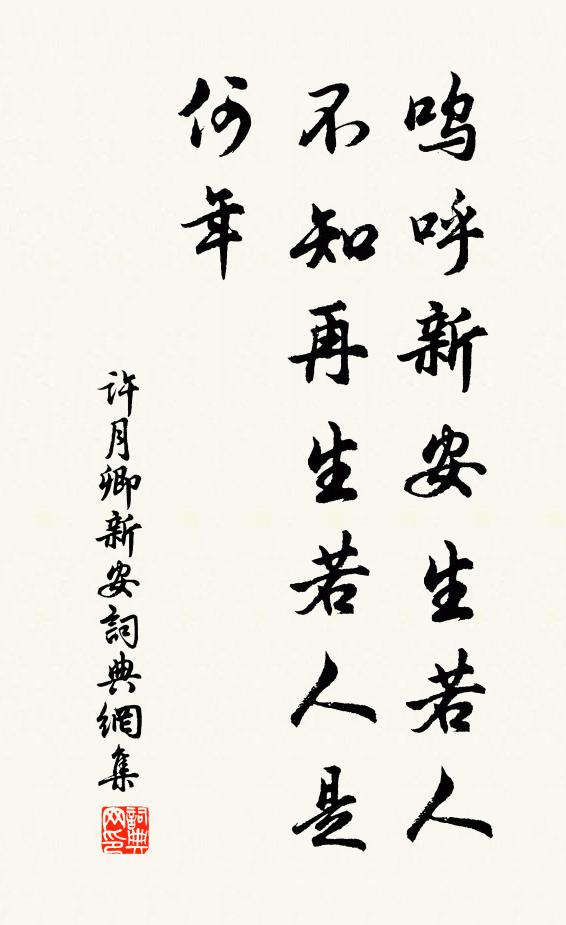 呜呼新安生若人
不知再生若人是
何年
许月卿新安詞典網集
詞典
网印